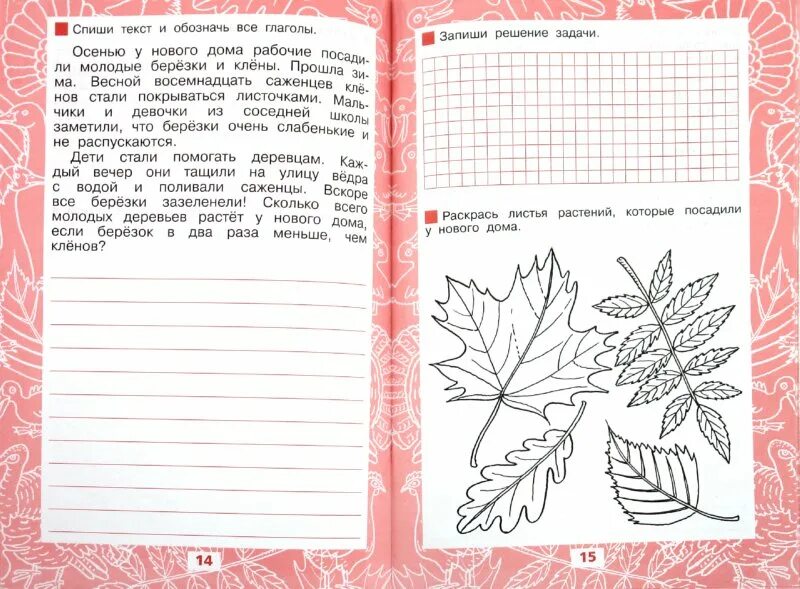 Спиши текст и обозначь все глаголы.
Осенью у нового дома рабочие посади-
ли молодые берёзки и клёны. Прошла зи-
ма. Весной восемнадцать саженцев клё-
нов стали покрываться листочками. Маль-
чики и девочки из соседней школы
заметили, что берёзки очень слабенькие и
не распускаются.
Дети стали помогать деревцам. Каж-
дый вечер они тащили на улицу вёдра
с водой и поливали саженцы. Вскоре
все берёзки зазеленели! Сколько всего
молодых деревьев растёт у нового дома,
если берёзок в два раза меньше, чем
клёнов?
14
Запиши решение задачи.
Раскрась листья растений, которые посадили
у нового дома.
15